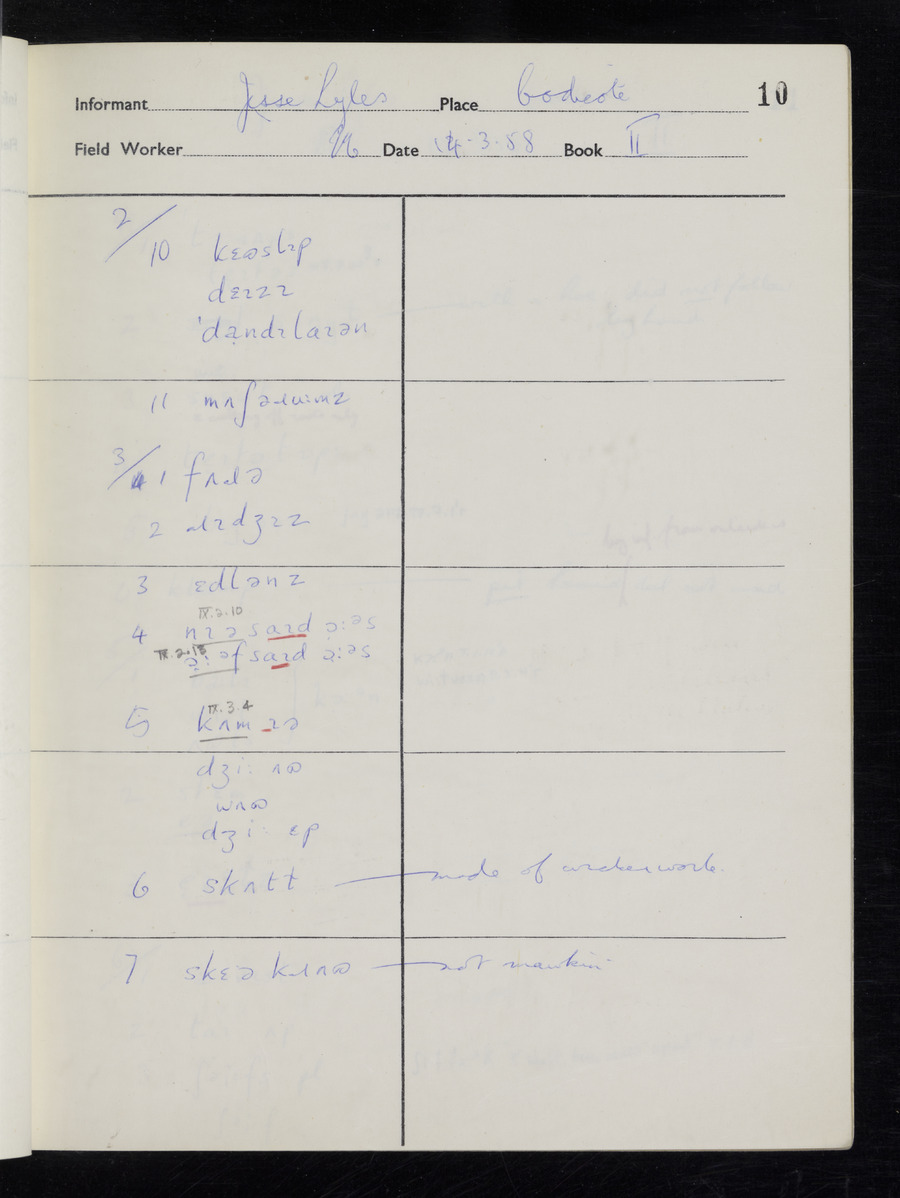 Informant Jesse Lyles Place Bodicote 10
Field Worker Date 14-3-58 Book II
2/
10 kɛʊslɪp
dɛɪzɪ
ˈdandɪlaɪən
11 mʌʃəɹuːmz
3/1 fʌɹə
2 ɹɪdʒɪz
3 ɛdlənz
IX.2.10
4 nɪəsaɪd ɔːəs
IX.2.13
ɔːəf saɪd ɔːəs
IX.3.4
5 kʌm ɪə
dʒiː ʌʊ
wʌʊ
dʒiː ɛp
6 skʌtt made of wickerwork.
7 skɛəkɹʌʊ not mawkin